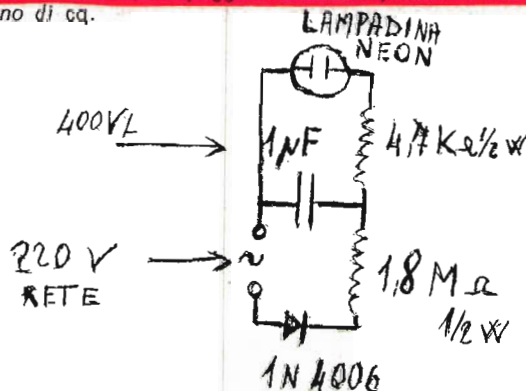 no di ca.
LAMPADINA
NEON
400VL
1µF
4,7KΩ½W
220 V
RETE
~
1,8 MΩ
1/2 W
1N 4006